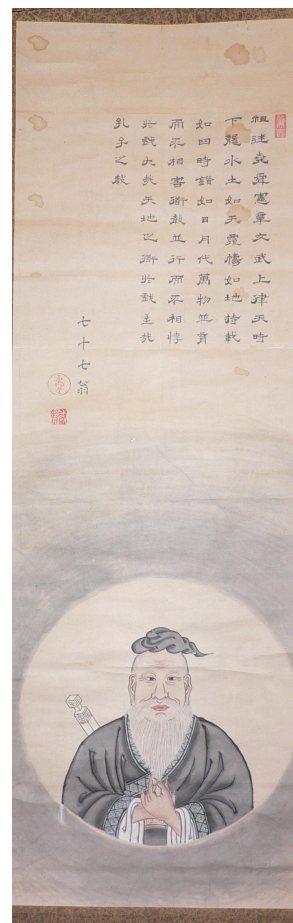 祖述堯舜憲章文武上律天時
下襲水土如天覆幬如地持載
如四時錯如日月代萬物並育
而不相害衜敎並行而不相悖
於戲大哉天地之衜於戲至哉
孔子之敎
七十七翁